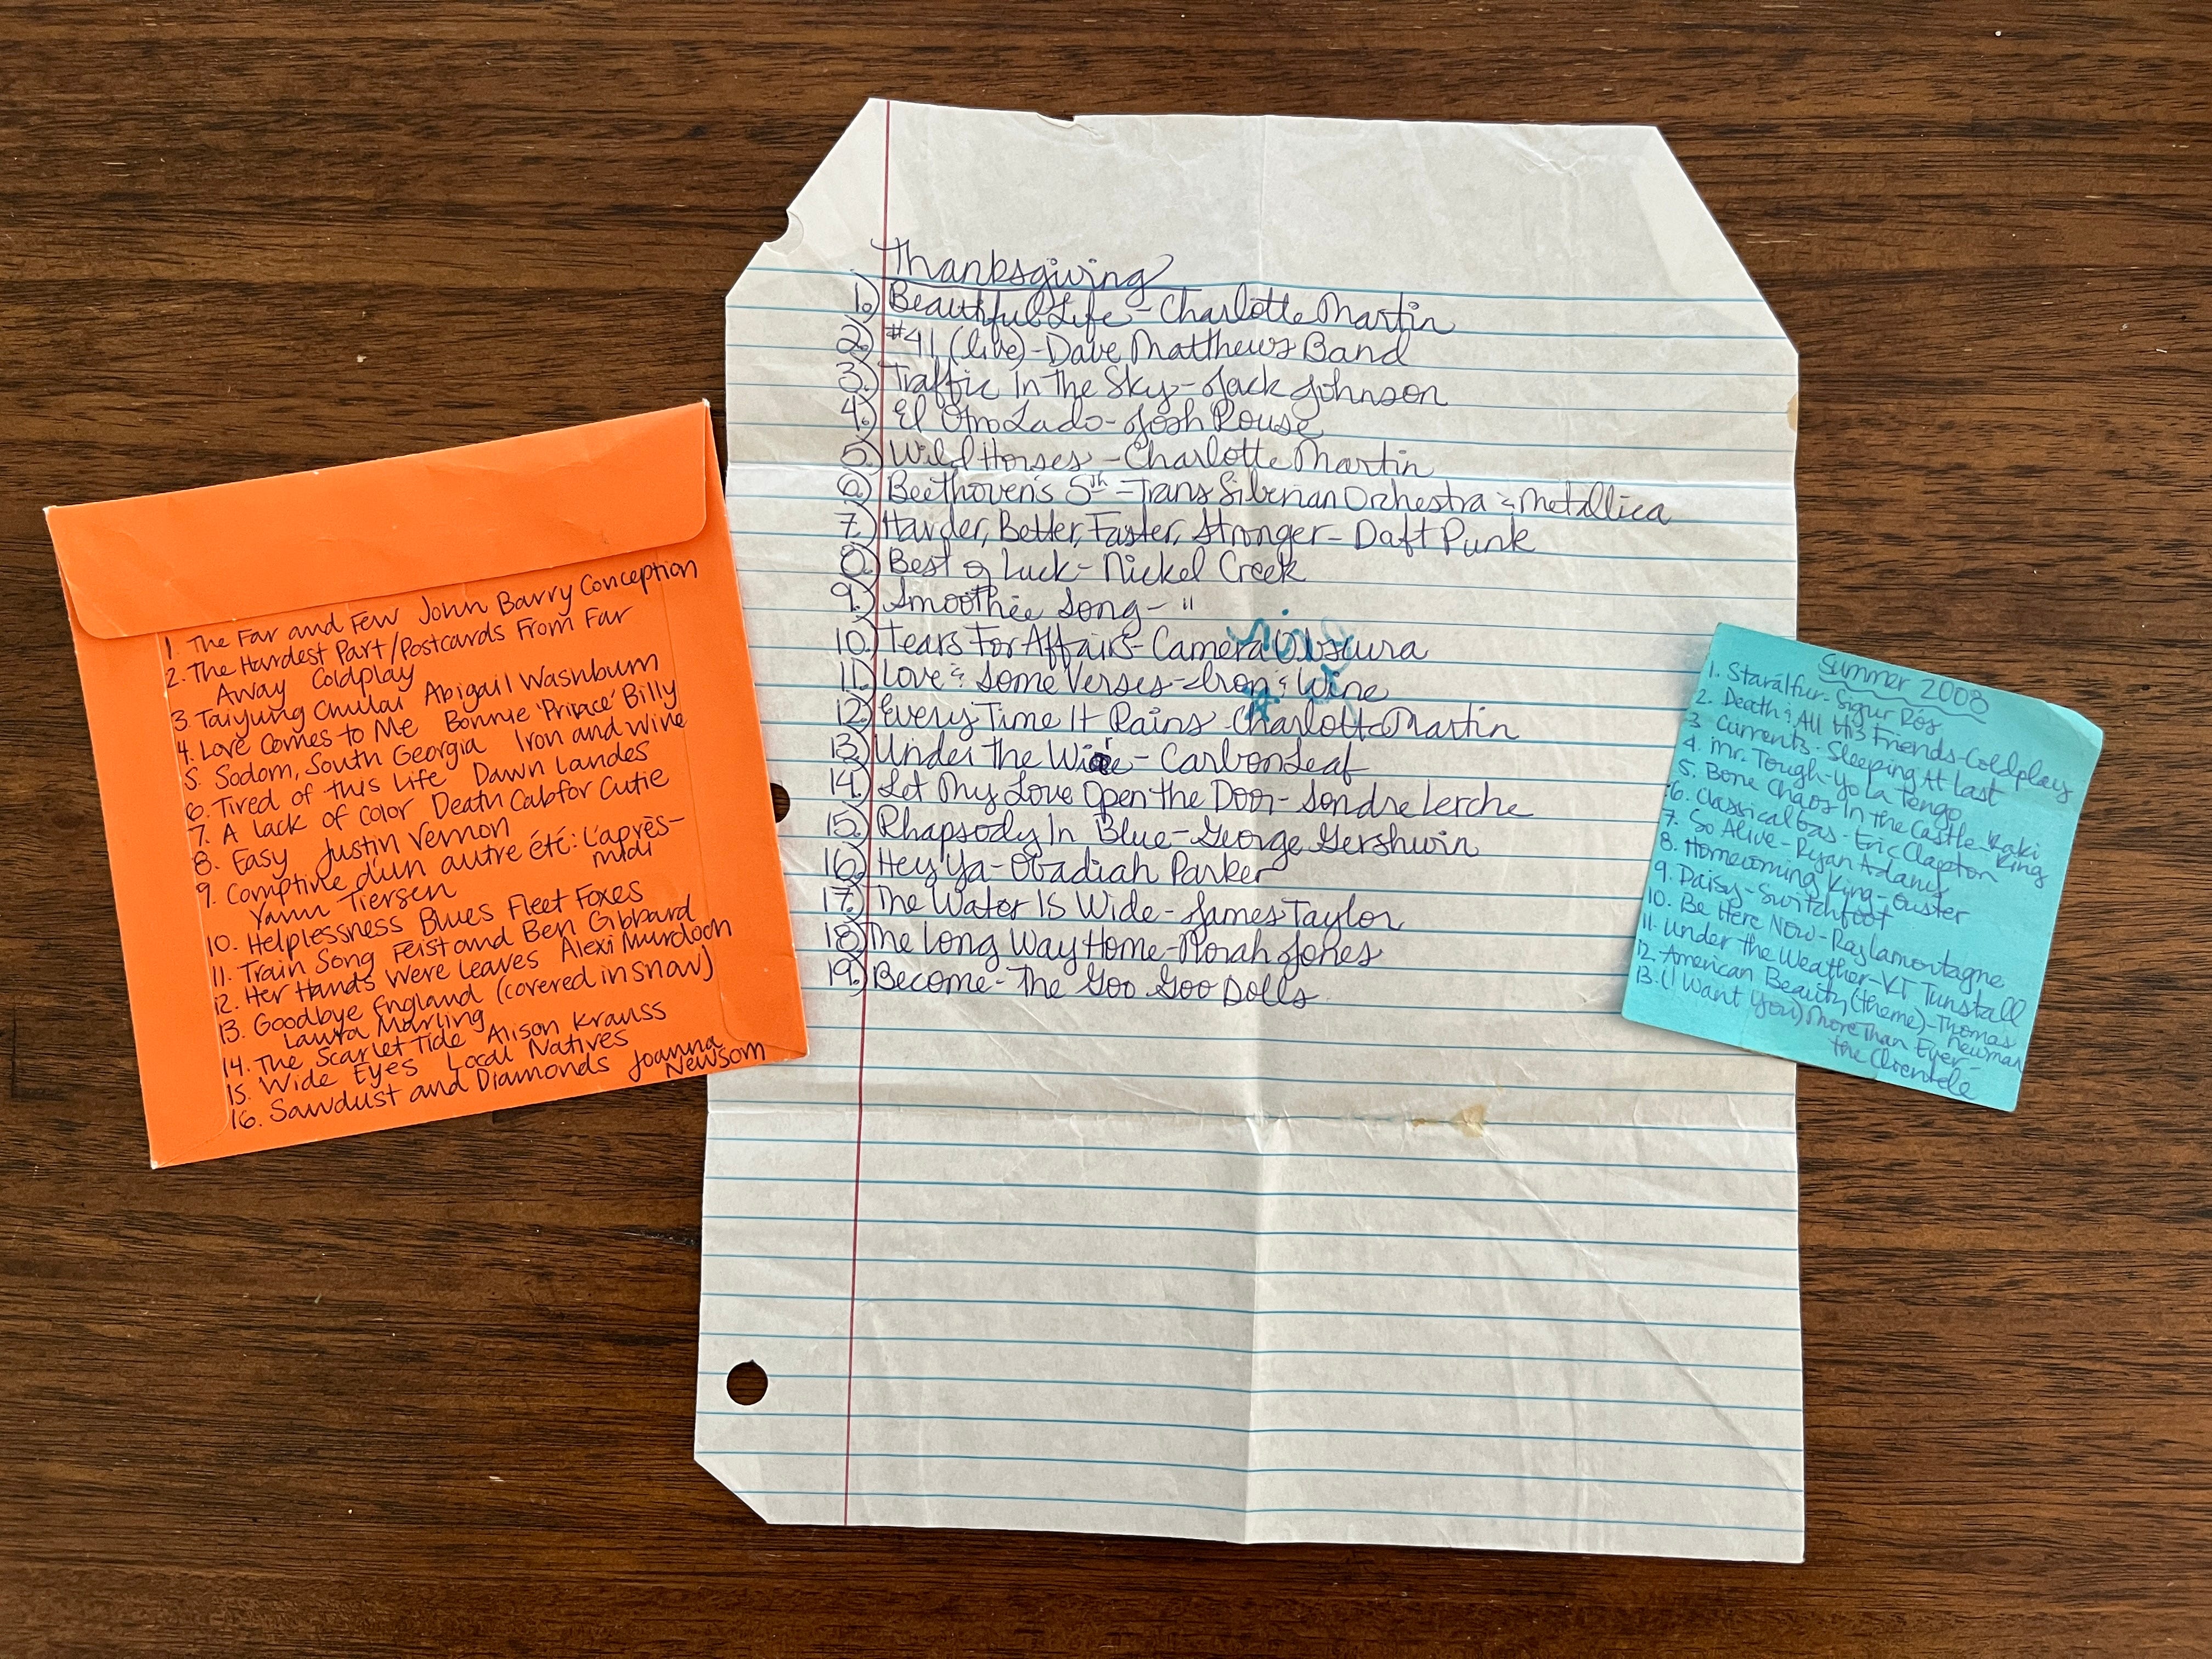 1. The Far and Few John Barry Conception
2. The Hardest Part/Postcards From Far
Away Coldplay
3. Taiyang Chulai Abigail Washburn
4. Love Comes to Me Bonnie 'Prince' Billy
5. Sodom, South Georgia Iron and Wine
6. Tired of this Life Dawn Landes
7. A lack of Color Death Cab for Cutie
8. Easy Justin Vernon
9. Comptine d'un autre été: L'après-
midi
Yann Tiersen
10. Helplessness Blues Fleet Foxes
11. Train Song Feist and Ben Gibbard
12. Her Hands Were Leaves Alexi Murdoch
13. Goodbye England (covered in snow)
Laura Marling
14. The Scarlet Tide Alison Krauss
15. Wide Eyes Local Natives
16. Sawdust and Diamonds Joanna
Newsom
Thanksgiving
1.) Beautiful Life - Charlotte Martin
2.) #41 (live) - Dave Matthews Band
3.) Traffic In The Sky - Jack Johnson
4.) El Otro Lado - Josh Rouse
5.) Wild Horses - Charlotte Martin
6.) Beethoven's 5th - Trans Siberian Orchestra & Metallica
7.) Harder, Better, Faster, Stronger - Daft Punk
8.) Best of Luck - Nickel Creek
9.) Smoothie Song - "
10.) Tears For Affairs - Camera Obscura
11.) Love & Some Verses - Iron & Wine
12.) Every Time It Rains - Charlotte Martin
13.) Under the Wire - Carbon Leaf
14.) Let My Love Open the Door - Sondre Lerche
15.) Rhapsody In Blue - George Gershwin
16.) Hey Ya - Obadiah Parker
17.) The Water Is Wide - James Taylor
18.) The Long Way Home - Norah Jones
19.) Become - The Goo Goo Dolls
Summer 2008
1. Staralfur - Sigur Rós
2. Death & All His Friends - Coldplay
3. Currents - Sleeping At Last
4. Mr. Tough - Yo La Tengo
5. Bone Chaos In the Castle - Kaki
King
6. Classical Gas - Eric Clapton
7. So Alive - Ryan Adams
8. Homecoming King - Guster
9. Daisy - Switchfoot
10. Be Here Now - Ray Lamontagne
11. Under the Weather - KT Tunstall
12. American Beauty (theme) - Thomas
Newman
13. (I Want You) More Than Ever -
the Clientele